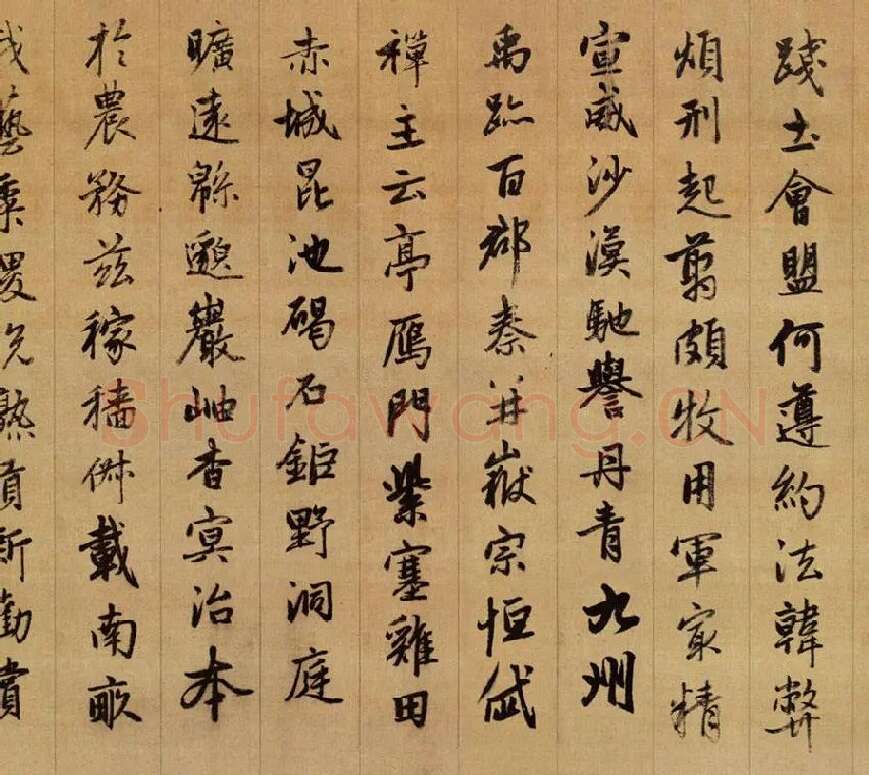 踐土會盟何遵約法韓弊
煩刑起翦頗牧用軍冣精
宣威沙漠馳譽丹青九州
禹跡百郡秦并嶽宗恒岱
禪主云亭鴈門紫塞雞田
赤城昆池碣石鉅野洞庭
曠遠緜邈巖岫杳冥治本
於農務茲稼穡俶載南畝
我藝黍稷稅熟貢新勸賞
Shufawang.CN